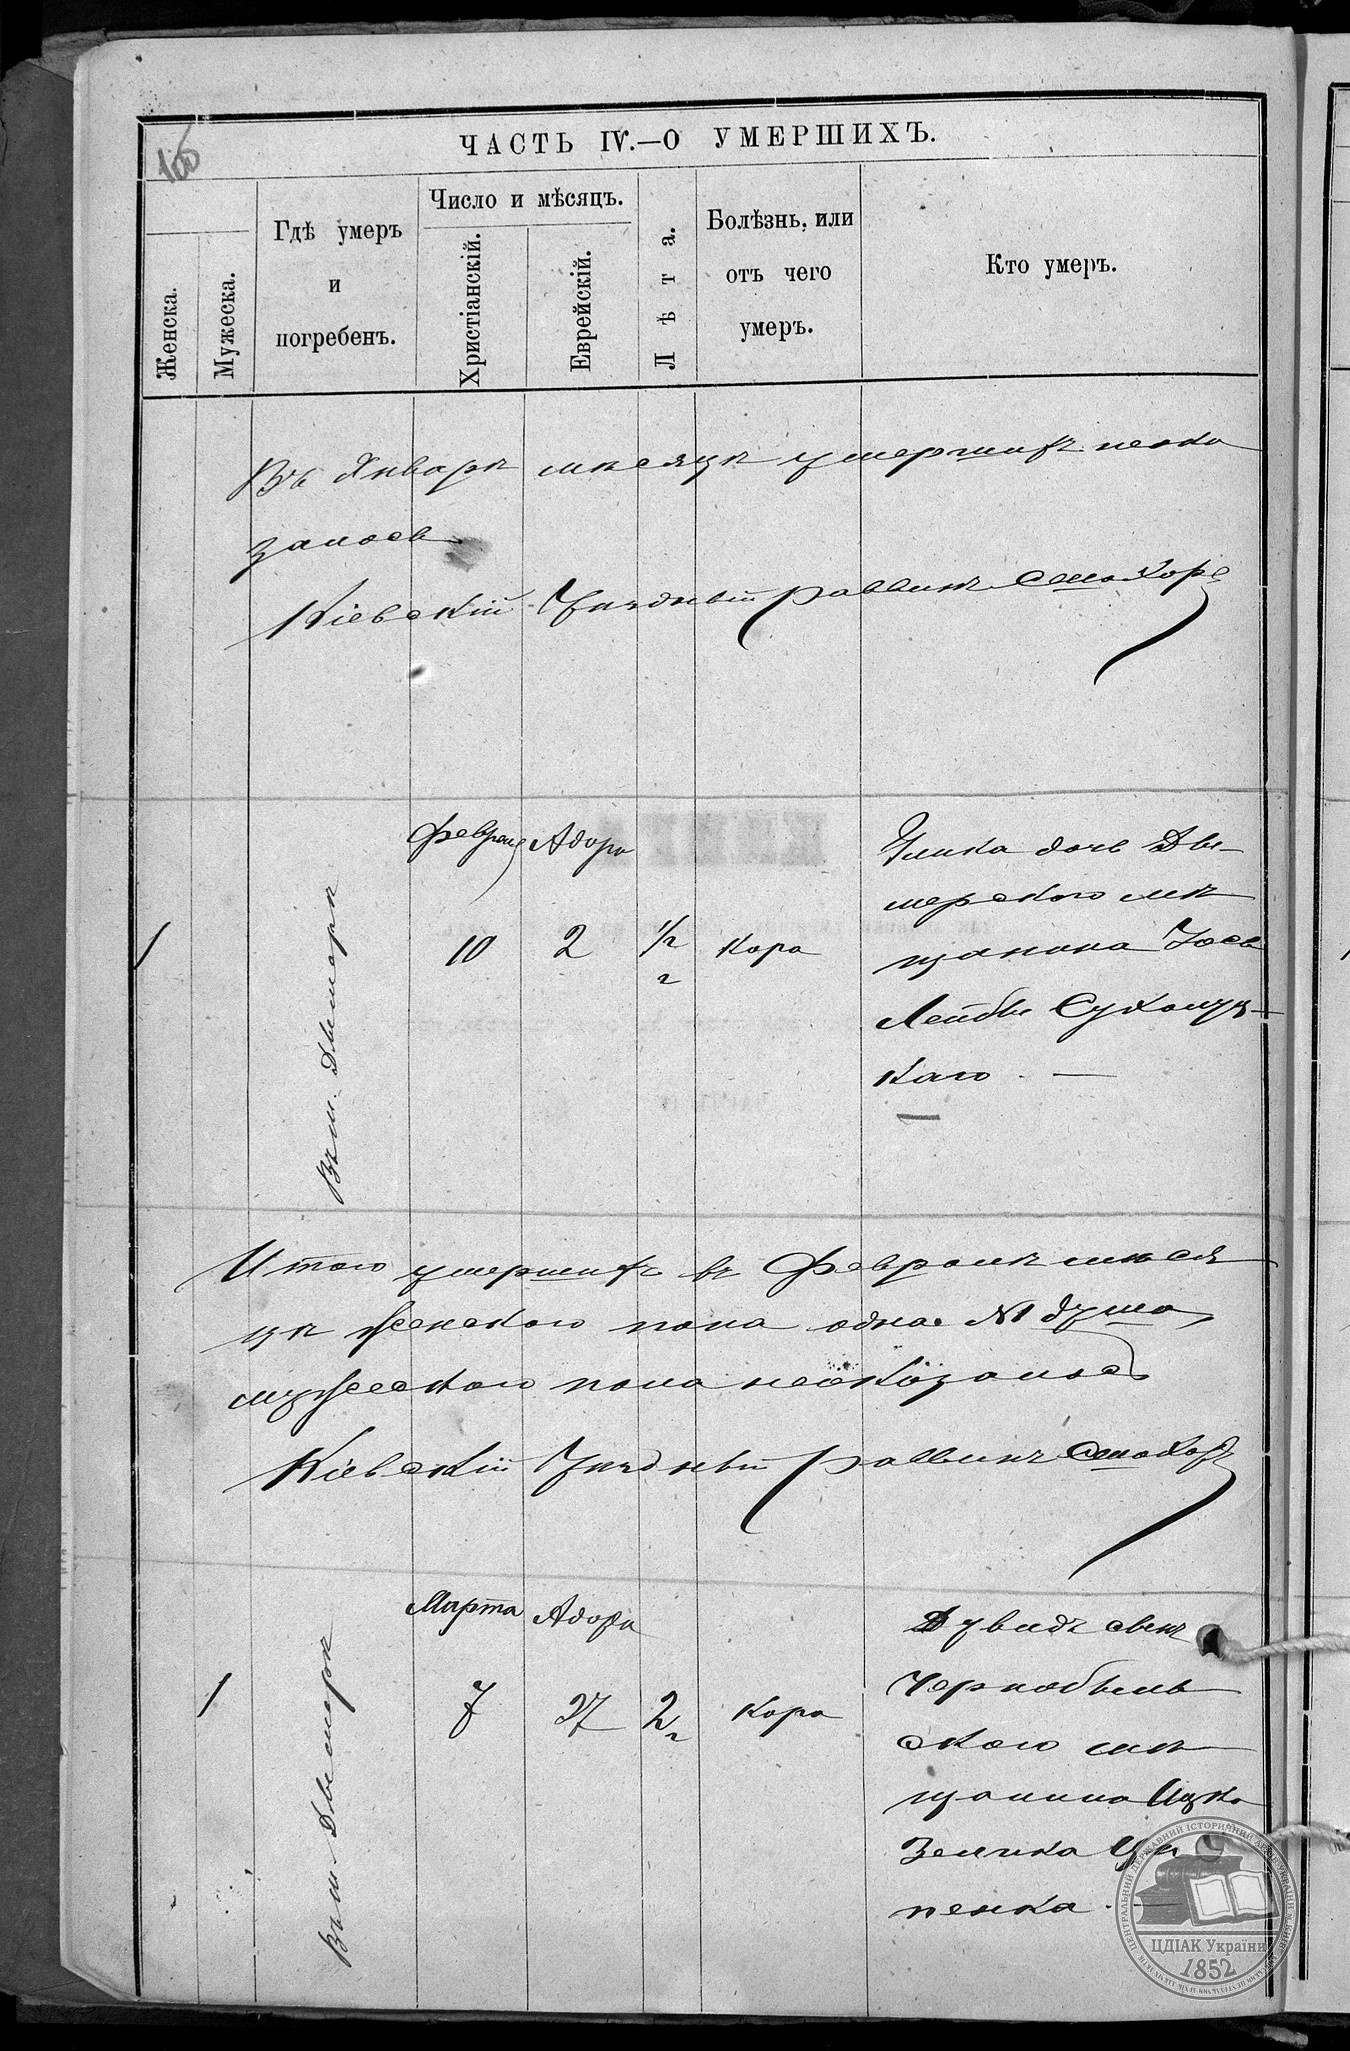 ЧАСТЬ IV.—О УМЕРШИХЪ.
Женска.
Мужеска.
Гдѣ умеръ
и
погребенъ.
Число и мѣсяцъ.
Христіанскій.
Еврейскій.
Лѣта.
Болѣзнь, или
отъ чего
умеръ.
Кто умеръ.
Въ Январѣ мѣсяцѣ умершихъ неока
залось
Кіевскій Уѣздный Раввинъ
1
Въ м. Дымеркѣ
Февраля
10
Адора
2
1/2
г
Кора
дочь Ды-
мерского мѣ
щанина Іось
Лейбы Сухолуц-
каго. —
Итого умершихъ въ Февралѣ мѣся
цѣ женского пола одна №1 душа,
мужеского пола неоказалось
Кіевскій Уѣздный Раввинъ
1
Въ м. Дымеркѣ
Марта
7
Адора
27
2 г
Кора
Дувидъ сынъ
Чернобыль
ского мѣ
щанина Ицко
Зелика
пенка. —
ЦДІАК України
1852